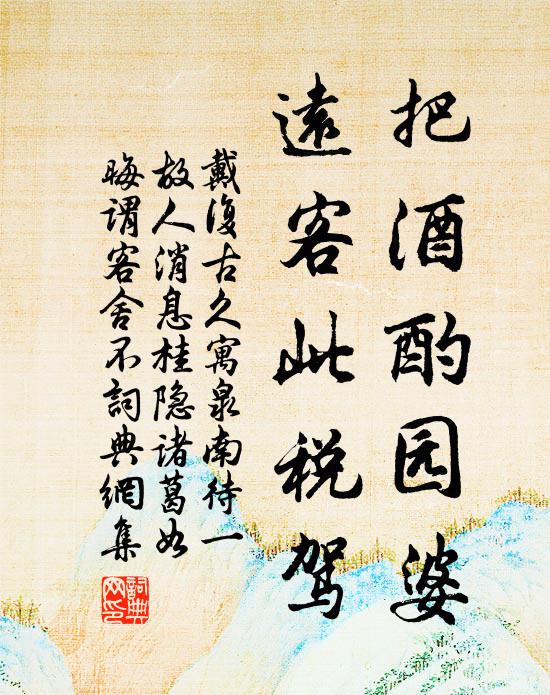 把酒酌园婆
遠客此税驾
戴復古久寓泉南待一
故人消息桂隐诸葛如
晦谓客舍不詞典網集
詞典網印